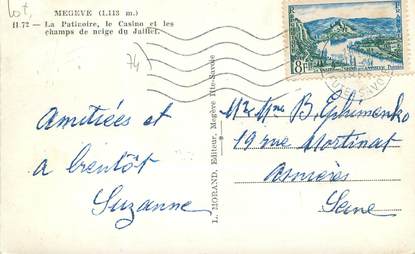 Lot,
MEGEVE (1.113 m.)
11.72 — La Patinoire, le Casino et les
champs de neige du Jaillet.
74)
8F
Amitiées et
a brentôt
Suzanne
L. MORAND, Editeur, Megève Hte-Savoie
Mr Mme B. Ephimenko
19 rue Mortinat
Asnières
Seine